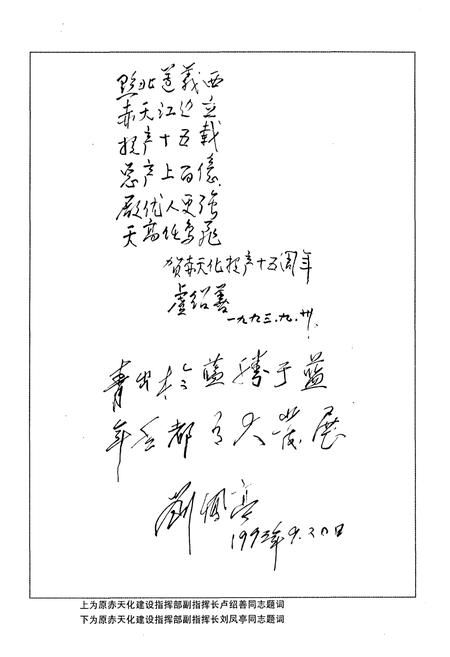 黔北遵義西
赤天江边立
投产十五载
总产上百億
厰优人更强
天高任鸟飛
贺赤天化投产十五周年
盧绍善
一九九三.九.廿.
青出於蓝勝于蓝
年年都有大发展
劉凤亭
1993年9.20日
上为原赤天化建设指挥部副指挥长卢绍善同志题词
下为原赤天化建设指挥部副指挥长刘凤亭同志题词